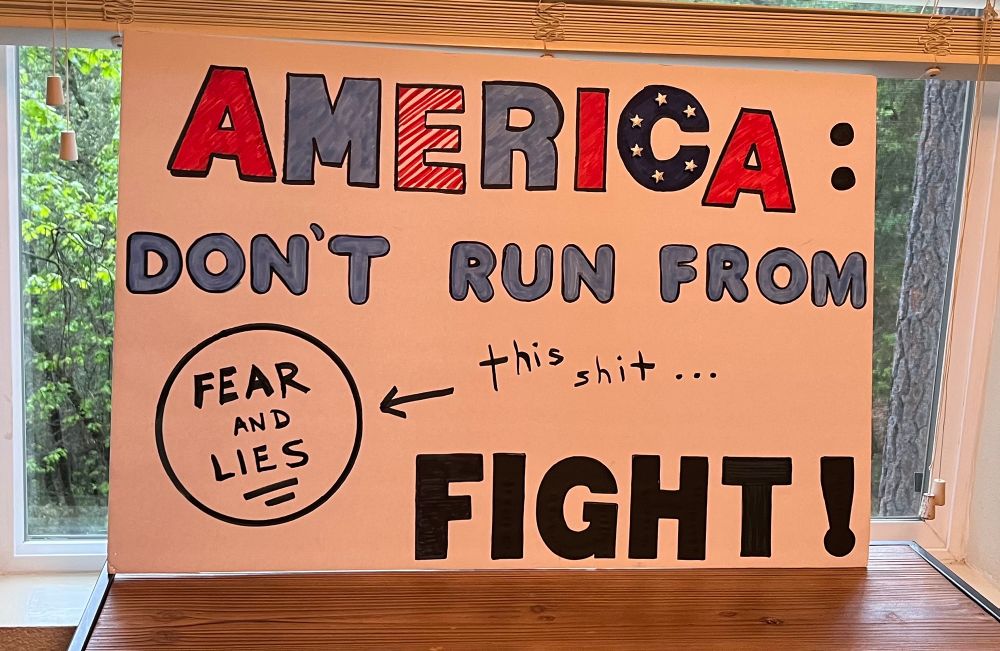 AMERICA:
DON'T RUN FROM
this shit...
FEAR
AND
LIES
FIGHT!